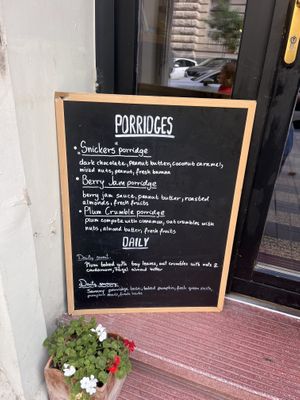 PORRIDGES
• Snickers porridge
dark chocolate, peanut butter, coconut caramel,
mixed nuts, peanut, fresh banana
• Berry Jam porridge
berry jam sauce, peanut butter, roasted
almonds, fresh fruits
• Plum Crumble porridge
plum compote with cinnamon, oat crumbles with
nuts, almond butter, fresh fruits
DAILY
Daily sweet:
Plum baked with bay leaves, oat crumbles with nuts &
cardamom, almond butter
Daily savory:
Savoury porridge base, baked pumpkin, fresh green